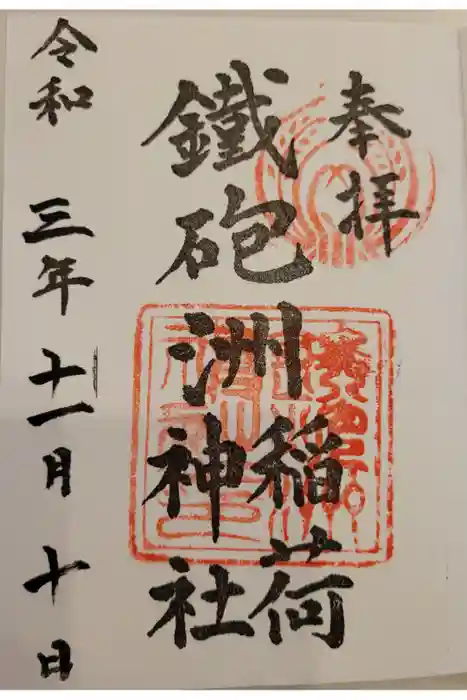 奉拝
鐵砲洲稲荷神社
令和三年十一月十日